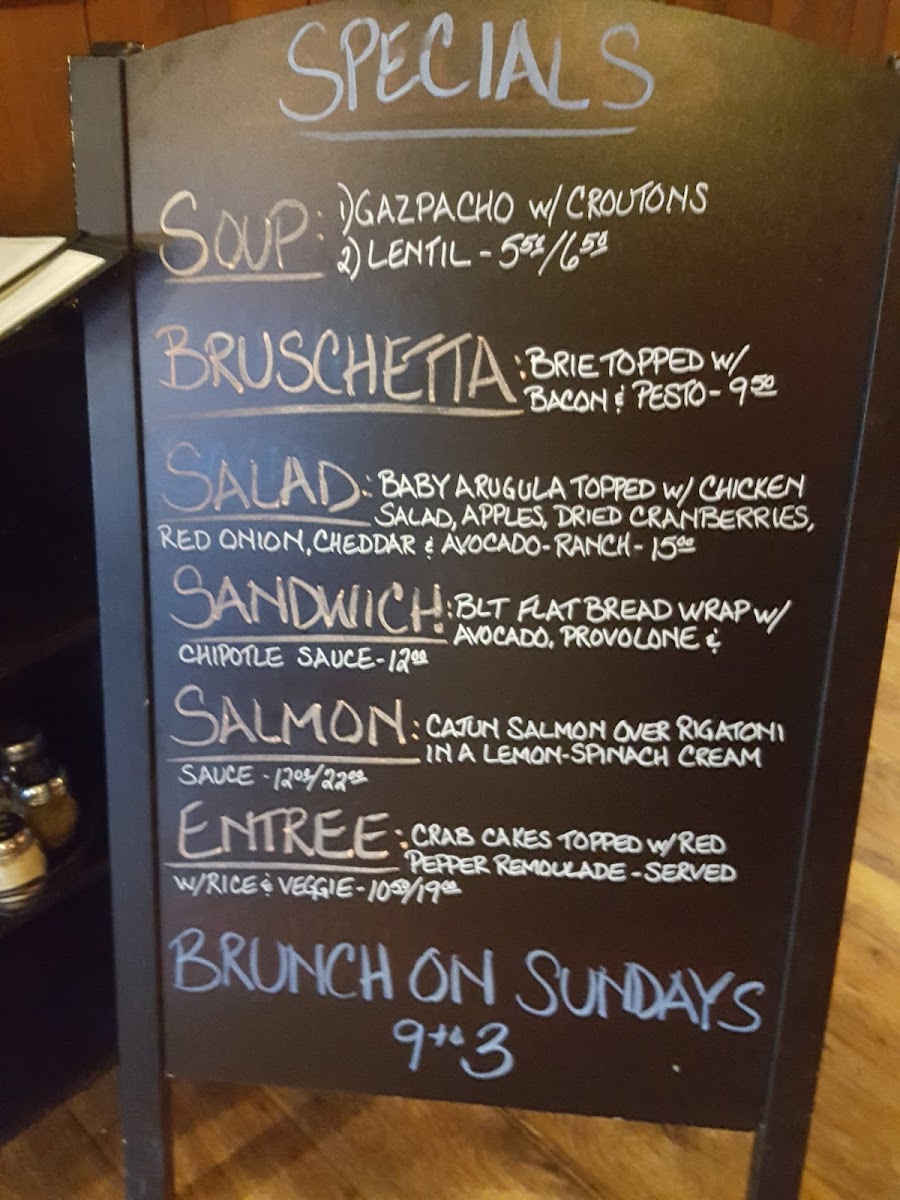 SPECIALS
SOUP: 1) GAZPACHO W/ CROUTONS
2) LENTIL - 5.50/6.50
BRUSCHETTA: BRIE TOPPED W/
BACON & PESTO - 9.50
SALAD: BABY ARUGULA TOPPED W/ CHICKEN
SALAD, APPLES, DRIED CRANBERRIES,
RED ONION, CHEDDAR & AVOCADO-RANCH - 15.00
SANDWICH: BLT FLAT BREAD WRAP W/
AVOCADO, PROVOLONE &
CHIPOTLE SAUCE - 12.00
SALMON: CAJUN SALMON OVER RIGATONI
IN A LEMON-SPINACH CREAM
SAUCE - 12.00/22.00
ENTREE: CRAB CAKES TOPPED W/ RED
PEPPER REMOULADE - SERVED
W/ RICE & VEGGIE - 10.50/19.00
BRUNCH ON SUNDAYS
9 to 3